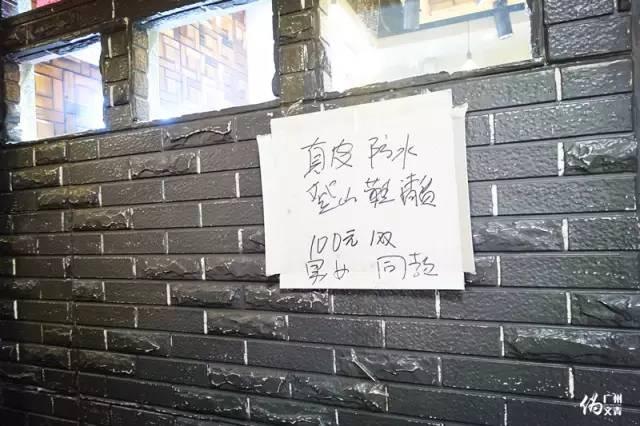 真皮 防水
登山鞋
100元 1双
男女 同款
伪
广州
文青